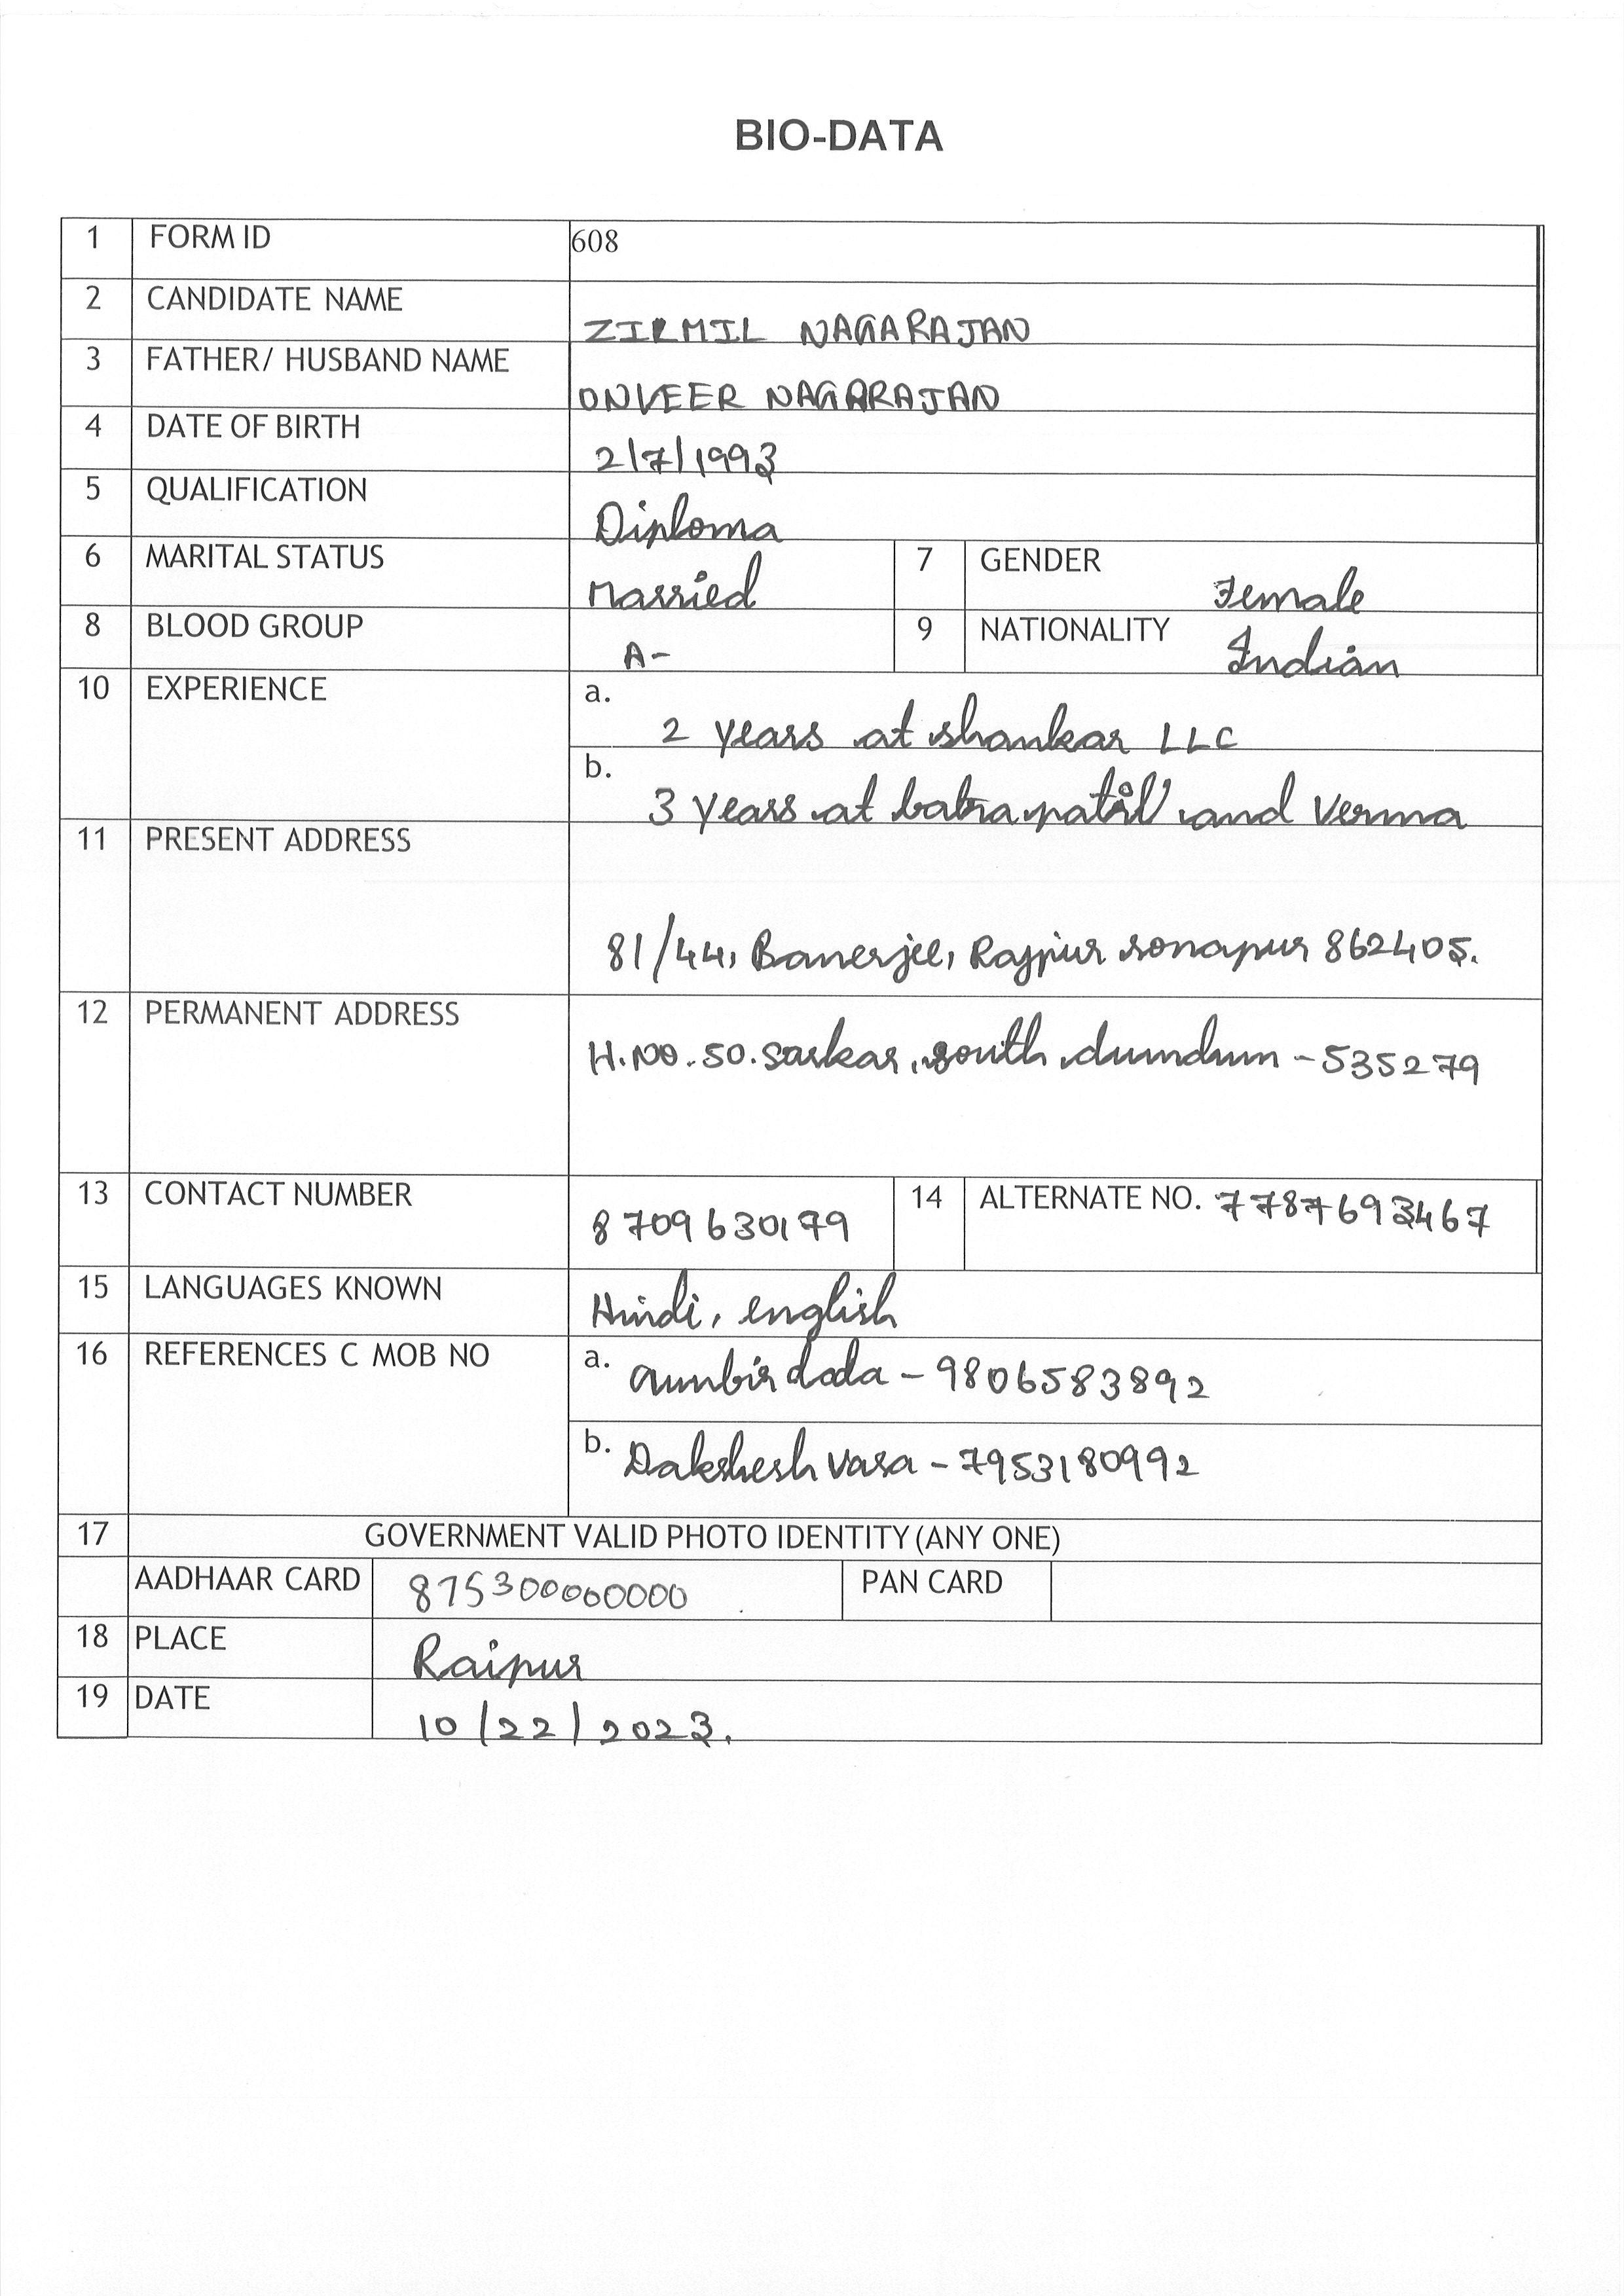 BIO-DATA
1 FORM ID 608
2 CANDIDATE NAME ZIRMIL NAGARAJAN
3 FATHER/ HUSBAND NAME ONVEER NAGARAJAN
4 DATE OF BIRTH 2/7/1993
5 QUALIFICATION Diploma
6 MARITAL STATUS Married 7 GENDER Female
8 BLOOD GROUP A- 9 NATIONALITY Indian
10 EXPERIENCE a. 2 years at shankar LLC
b. 3 years at batra patil and Verma
11 PRESENT ADDRESS
81/44, Banerjee, Rajpur sonapur 862405.
12 PERMANENT ADDRESS
H.NO.50.Sarkar, south dumdum - 535279
13 CONTACT NUMBER 8709630179 14 ALTERNATE NO. 7787693467
15 LANGUAGES KNOWN Hindi, english
16 REFERENCES C MOB NO a. aunbir doda - 9806583892
b. Dakshesh vasa - 7953180992
17 GOVERNMENT VALID PHOTO IDENTITY (ANY ONE)
AADHAAR CARD 875300000000 PAN CARD
18 PLACE Raipur
19 DATE 10/22/2023.